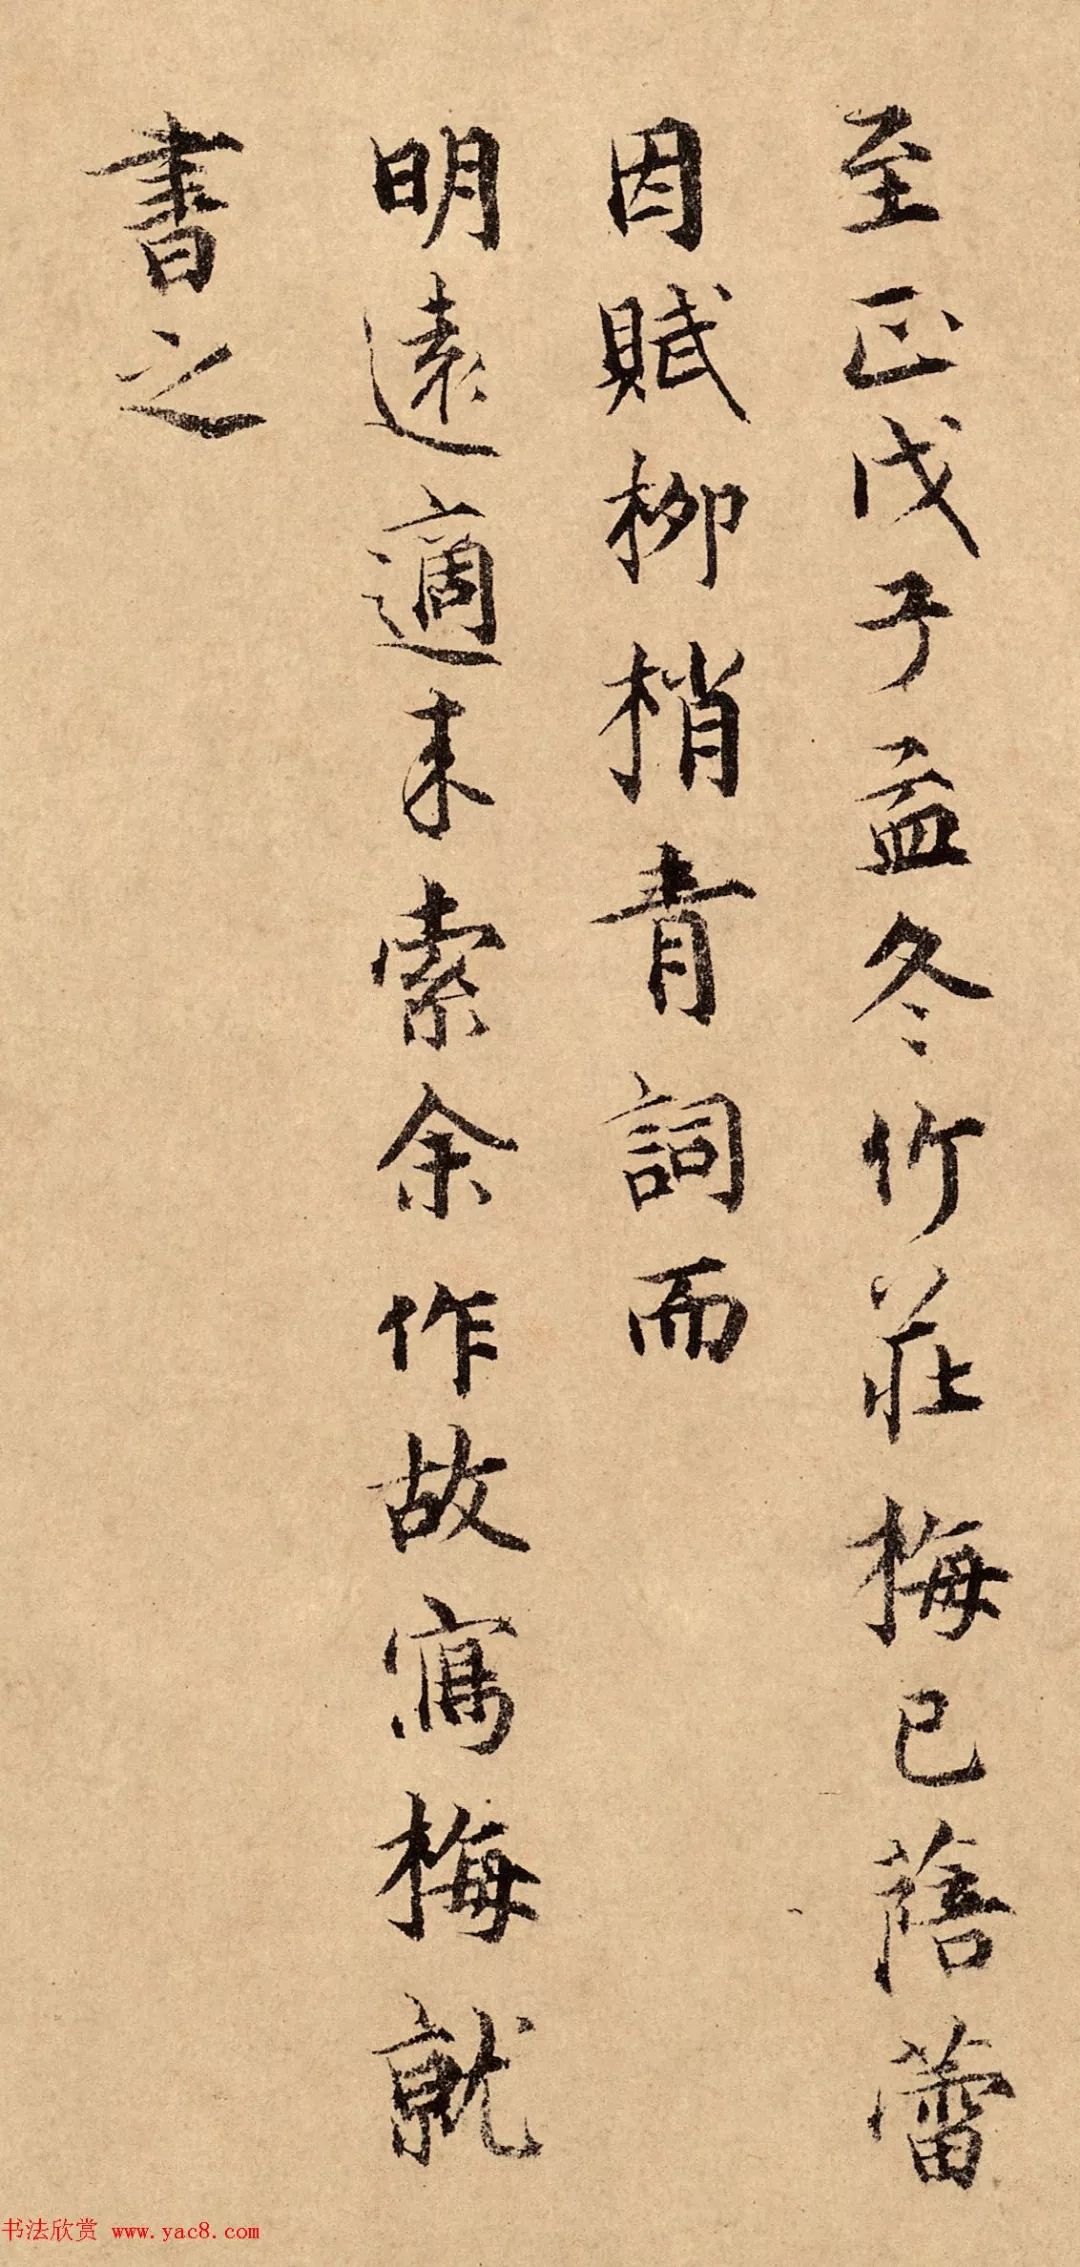 至正戊子孟冬竹莊梅已蓓蕾
因賦柳梢青詞而
明遠適來索余作故寫梅就
書之
书法欣赏 www.yac8.com